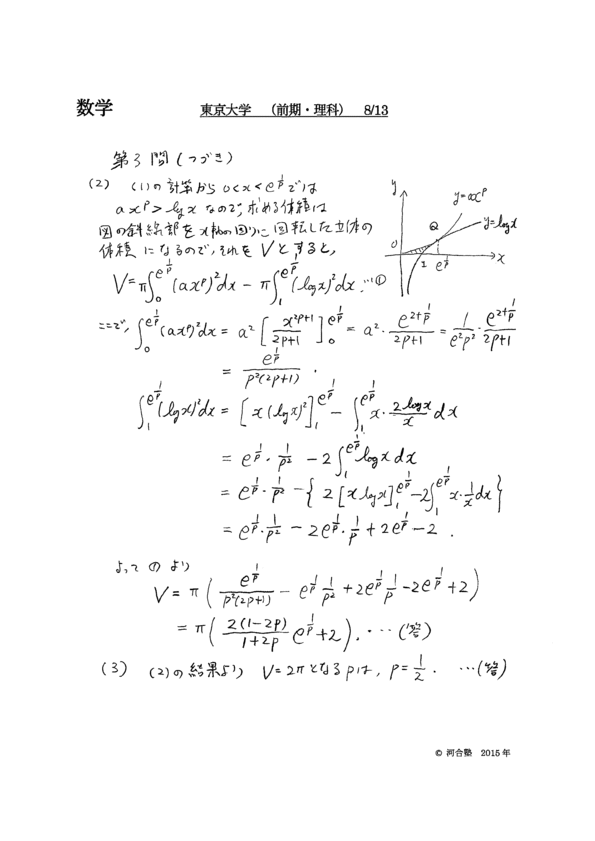 数学 東京大学 (前期・理科) 8/13
第3問(つづき)
(2) (1)の計算から 0<x<e^{1/p} では
ax^p > log x なので, 求める体積は
図の斜線部をx軸の回りに回転した立体の
体積になるので, それをVとすると,
y
y=ax^p
Q
y=log x
0
1
e^{1/p}
x
V=π∫_0^{e^{1/p}} (ax^p)^2dx − π∫_1^{e^{1/p}} (log x)^2dx …①
ここで, ∫_0^{e^{1/p}} (ax^p)^2dx = a^2 [x^{2p+1}/(2p+1)]_0^{e^{1/p}} = a^2・e^{2+1/p}/(2p+1) = 1/(e^2p^2)・e^{2+1/p}/(2p+1)
= e^{1/p}/(p^2(2p+1)) .
∫_1^{e^{1/p}} (log x)^2dx = [x(log x)^2]_1^{e^{1/p}} − ∫_1^{e^{1/p}} x・(2log x)/x dx
= e^{1/p}・1/p^2 − 2∫_1^{e^{1/p}} log x dx
= e^{1/p}・1/p^2 − {2[x log x]_1^{e^{1/p}} − 2∫_1^{e^{1/p}} x・1/x dx}
= e^{1/p}・1/p^2 − 2e^{1/p}・1/p + 2e^{1/p} − 2 .
よって ①より
V = π(e^{1/p}/(p^2(2p+1)) − e^{1/p} 1/p^2 + 2e^{1/p} 1/p − 2e^{1/p} + 2)
= π(2(1−2p)/(1+2p) e^{1/p} + 2). …(答)
(3) (2)の結果より V=2πとなるpは, p=1/2 . …(答)
© 河合塾 2015年